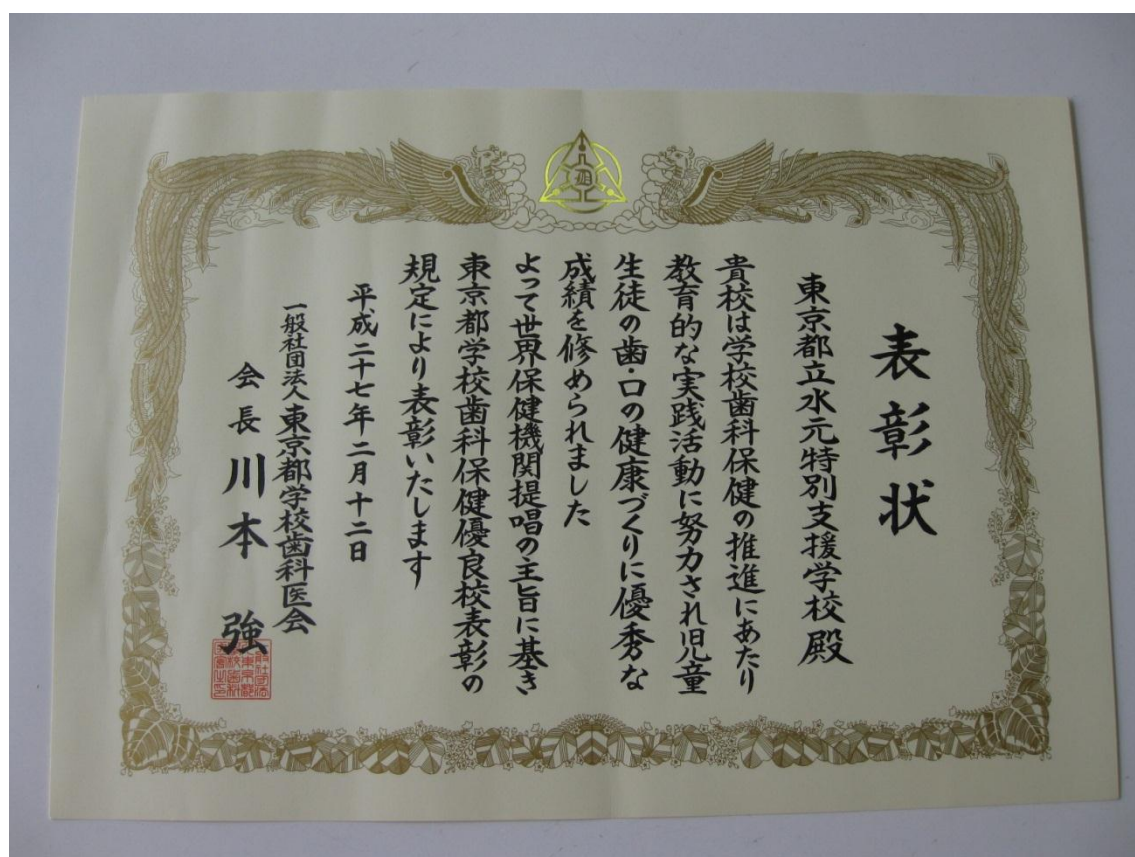 表彰状
東京都立水元特別支援学校殿
貴校は学校歯科保健の推進にあたり
教育的な実践活動に努力され児童
生徒の歯・口の健康づくりに優秀な
成績を修められました
よって世界保健機関提唱の主旨に基き
東京都学校歯科保健優良校表彰の
規定により表彰いたします
平成二十七年二月十二日
一般社団法人東京都学校歯科医会
会長川本強